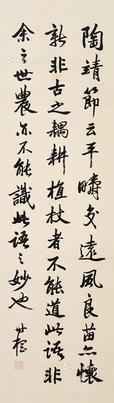 陶靖節云平疇交遠風良苗亦懷
新非古之耦耕植杖者不能道此語非
余之世農亦不能識此語之妙也